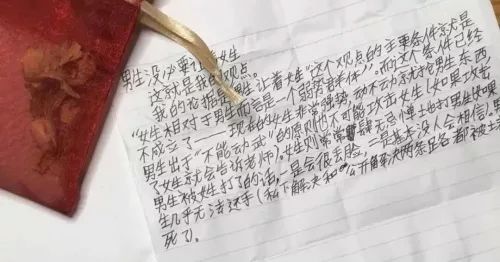 男生没必要让着女生
这就是我的观点。
我的论据是"男生让着女生"这个观点的主要条件就是
"女生相对于男生而言是一个弱势群体"。而这个条件已经
不成立了——现在的女生非常强势,动不动就抢男生东西,
男生出于"不能动武"的原则也不可能攻击女生(如果攻击
了女生就会告诉老师)。女生则常常肆无忌惮士地打男生如果
男生被女生打了的话,一是会很丢脸,二是基本没人会相信,
生几乎无法还手(私下解决和公开解决两条路都被
死了)。